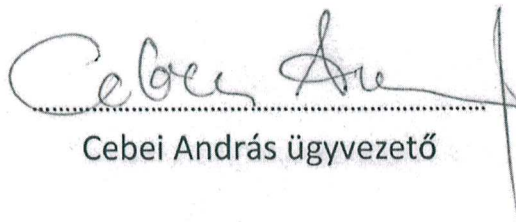 Cebei
Cebei András ügyvezető